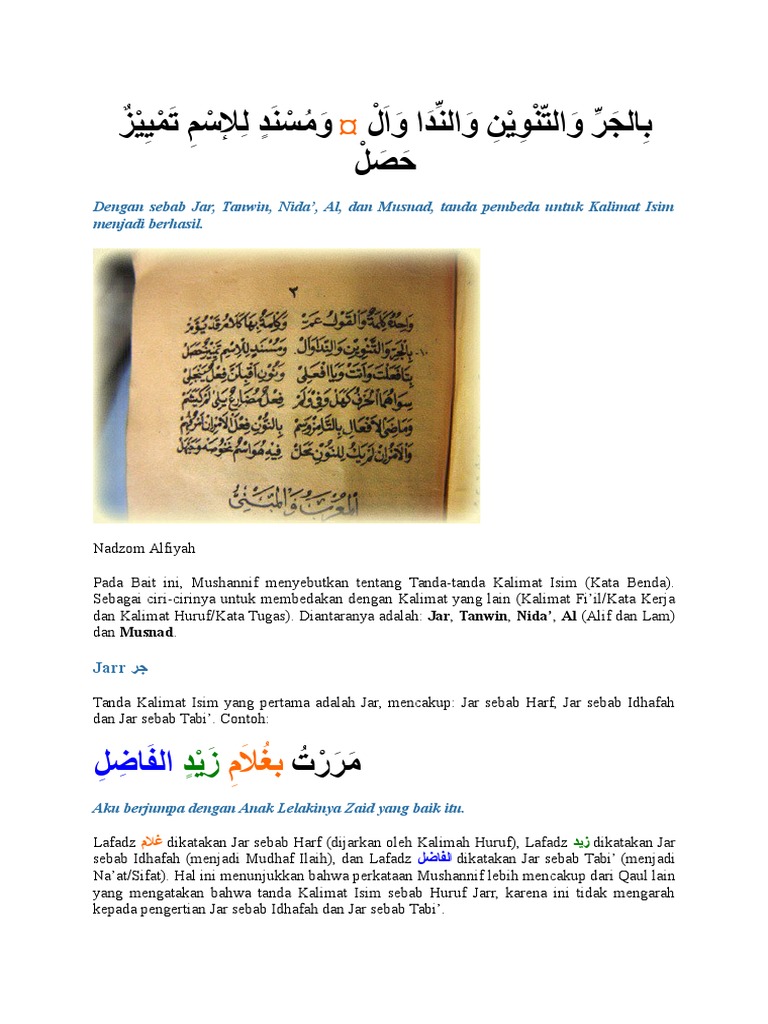 بِالجَرِّ وَالتَّنْوِيْنِ وَالنِّدَا وَاَلْ ¤ وَمُسْنَدٍ لِلإسْمِ تَمْيِيْزٌ
حَصَلْ
Dengan sebab Jar, Tanwin, Nida’, Al, dan Musnad, tanda pembeda untuk Kalimat Isim
menjadi berhasil.
٢
وَاحِدُهُ كَلِمَةٌ وَالقَوْلُ عَمّ وَكِلْمَةٌ بِهَا كَلَامٌ قَدْ يُؤَمّ
١٠- بِالجَرِّ وَالتَّنْوِينِ وَالنِّدَا وَالْ وَمُسْنَدٍ لِلْإِسْمِ تَمْيِيزٌ حَصَلْ
بِتَا فَعَلْتَ وَأَتَتْ وَيَا افْعَلِي وَنُونِ أَقْبِلَنَّ فِعْلٌ يَنْجَلِي
سِوَاهُمَا الْحَرْفُ كَهَلْ وَفِي وَلَمْ فِعْلٌ مُضَارِعٌ يَلِي لَمْ كَيَشَمْ
وَمَاضِيَ الْأَفْعَالِ بِالتَّا مِزْ وَسِمْ بِالنُّونِ فِعْلَ الْأَمْرِ إِنْ أَمْرٌ فُهِمْ
وَالْأَمْرُ إِنْ لَمْ يَكُ لِلنُّونِ مَحَلْ فِيهِ هُوَ اسْمٌ نَحْوُ صَهْ وَحَيَّهَلْ
الْمُعْرَبُ وَالْمَبْنِيُّ
Nadzom Alfiyah
Pada Bait ini, Mushannif menyebutkan tentang Tanda-tanda Kalimat Isim (Kata Benda).
Sebagai ciri-cirinya untuk membedakan dengan Kalimat yang lain (Kalimat Fi’il/Kata Kerja
dan Kalimat Huruf/Kata Tugas). Diantaranya adalah: Jar, Tanwin, Nida’, Al (Alif dan Lam)
dan Musnad.
Jarr جر
Tanda Kalimat Isim yang pertama adalah Jar, mencakup: Jar sebab Harf, Jar sebab Idhafah
dan Jar sebab Tabi’. Contoh:
مَرَرْتُ بغُلَامِ زَيْدٍ الفَاضِلِ
Aku berjumpa dengan Anak Lelakinya Zaid yang baik itu.
Lafadz غلام dikatakan Jar sebab Harf (dijarkan oleh Kalimah Huruf), Lafadz زيد dikatakan Jar
sebab Idhafah (menjadi Mudhaf Ilaih), dan Lafadz الفاضل dikatakan Jar sebab Tabi’ (menjadi
Na’at/Sifat). Hal ini menunjukkan bahwa perkataan Mushannif lebih mencakup dari Qaul lain
yang mengatakan bahwa tanda Kalimat Isim sebab Huruf Jarr, karena ini tidak mengarah
kepada pengertian Jar sebab Idhafah dan Jar sebab Tabi’.